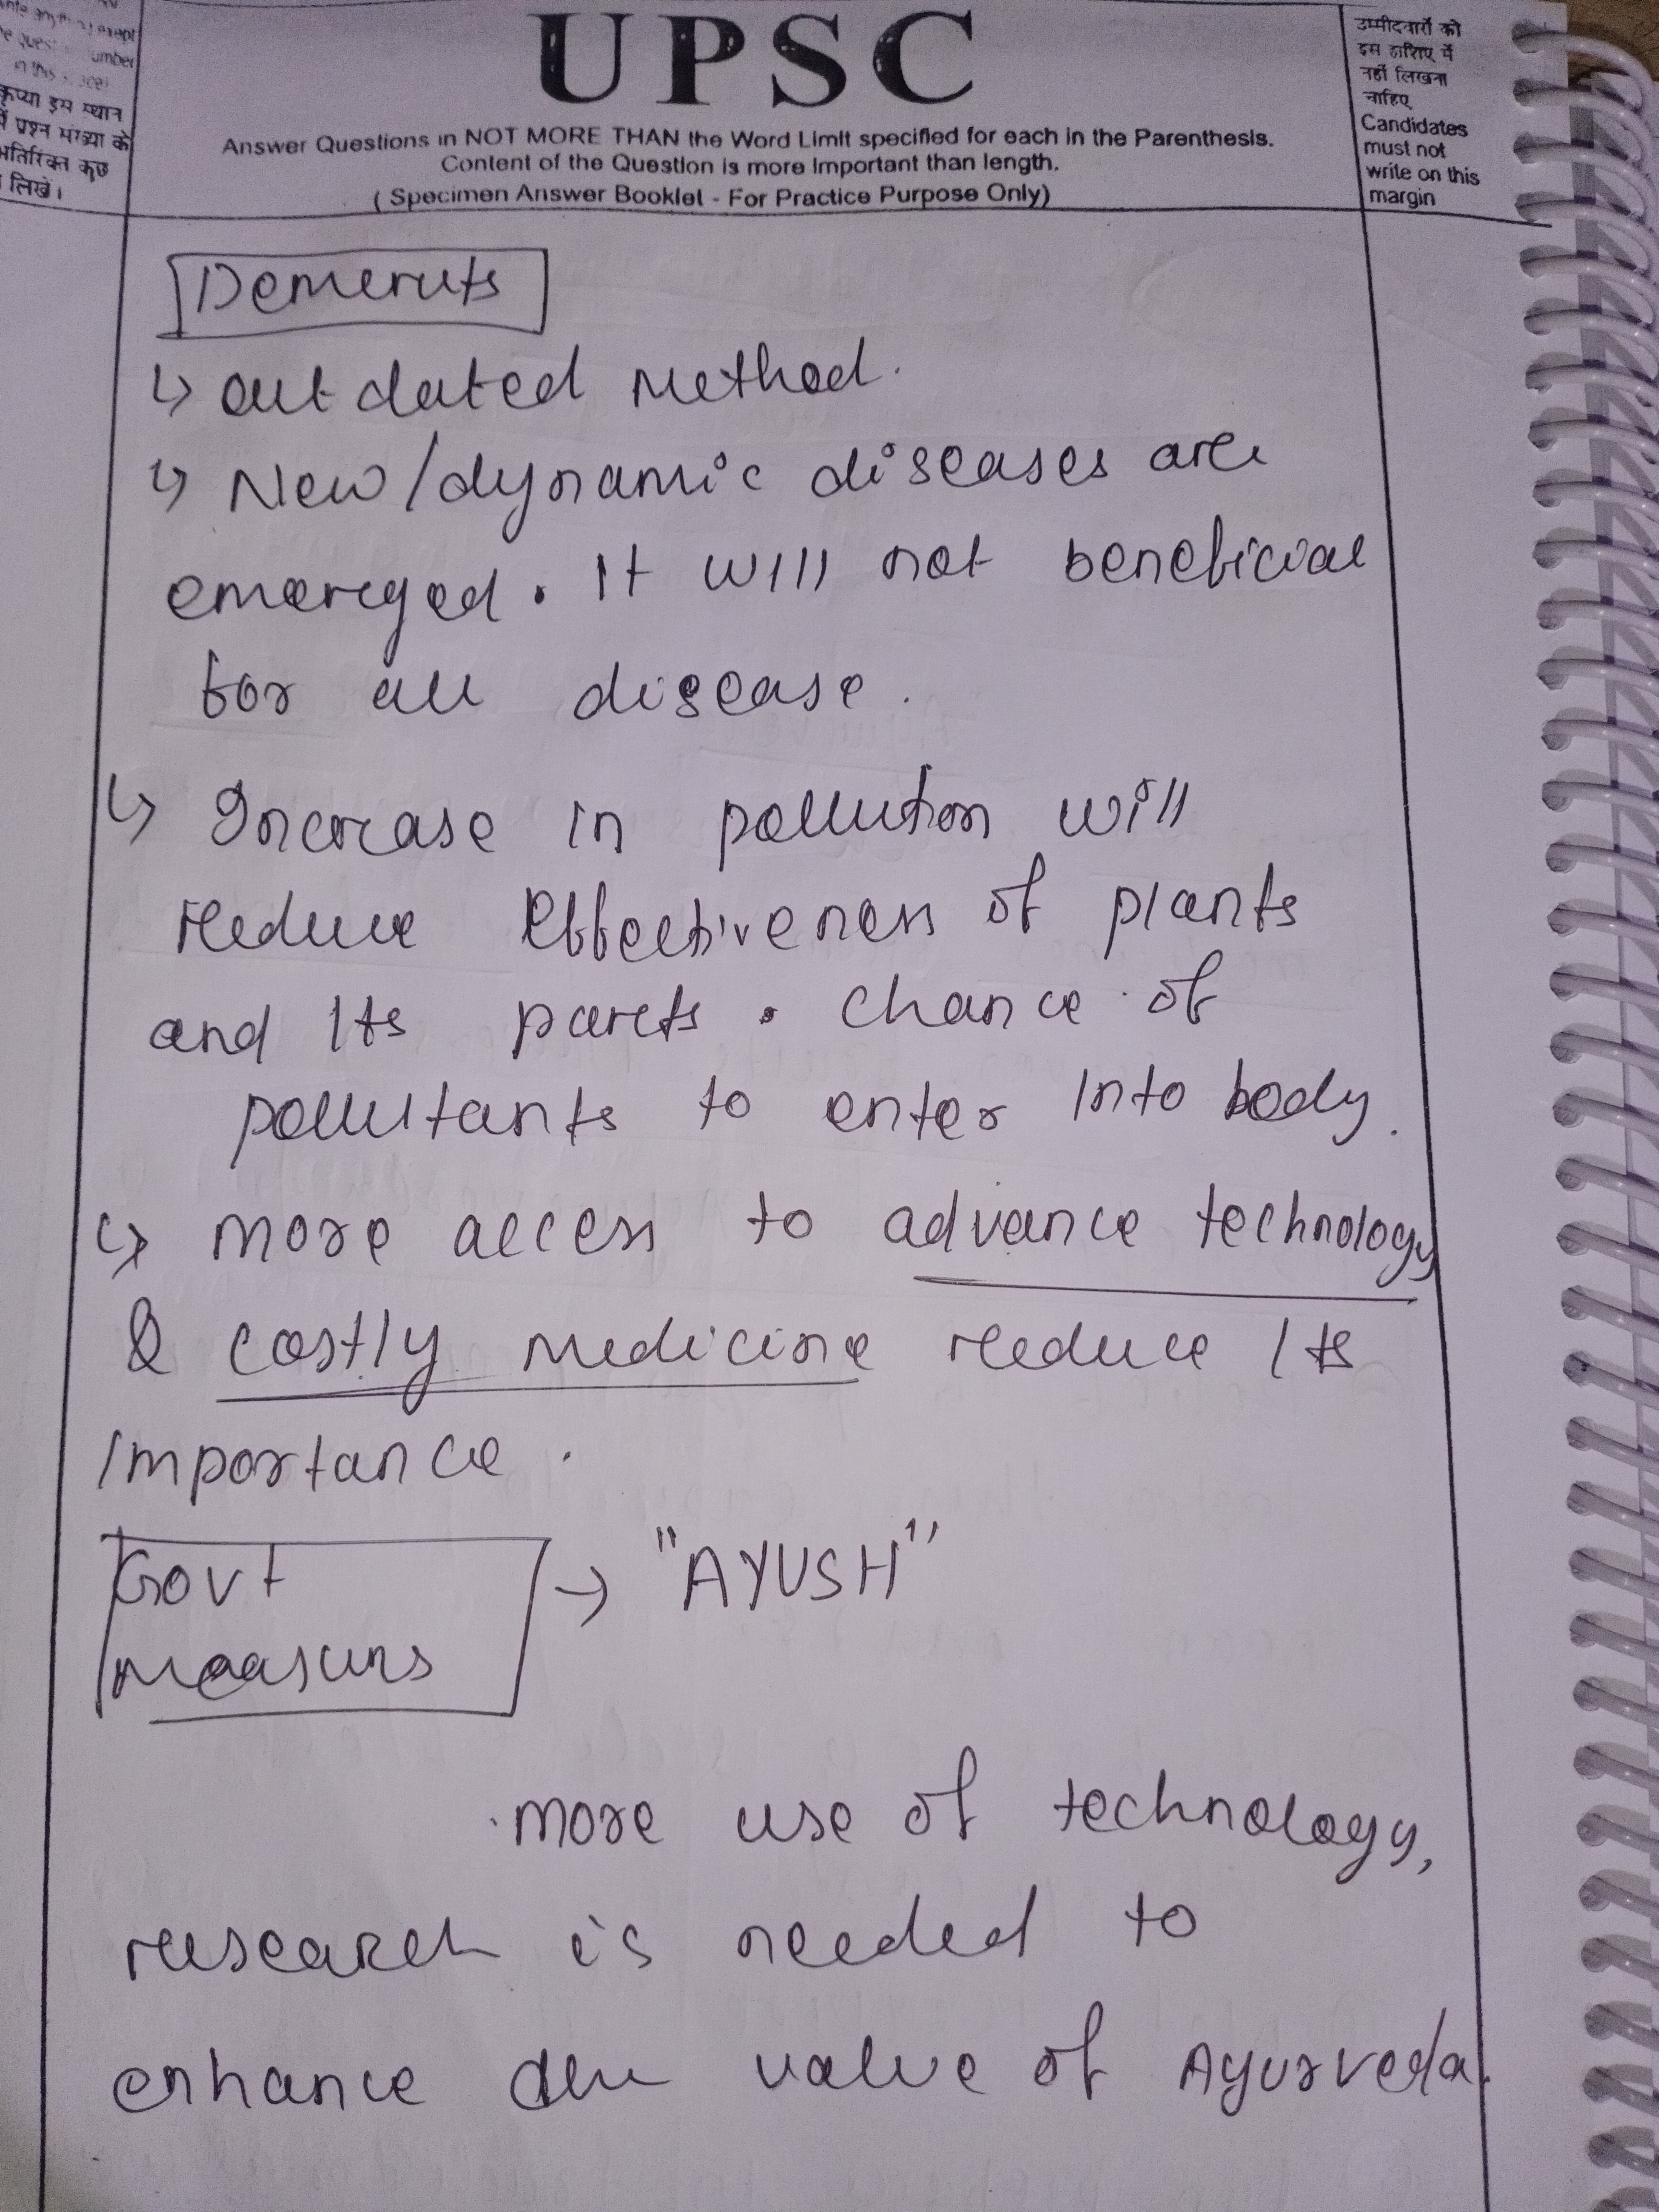 UPSC
Answer Questions in NOT MORE THAN the Word Limit specified for each in the Parenthesis.
Content of the Question is more Important than length.
( Specimen Answer Booklet - For Practice Purpose Only)
umber
in this
कृप्या इस स्थान
में प्रश्न संख्या के
अतिरिक्त कुछ
लिखें।
उम्मीदवारों को
इस हाशिए में
नहीं लिखना
चाहिए
Candidates
must not
write on this
margin
Demerits
↳ outdated Method.
↳ New/dynamic diseases are
emerged. It will not beneficial
for all disease.
↳ Increase in pollution will
reduce effectiveness of plants
and Its parts. Chance of
pollutants to enter Into body.
↳ more access to advance technology
& costly medicine reduce Its
Importance.
Govt → "AYUSH"
measurs
more use of technology,
research is needed to
enhance the value of Ayurveda.